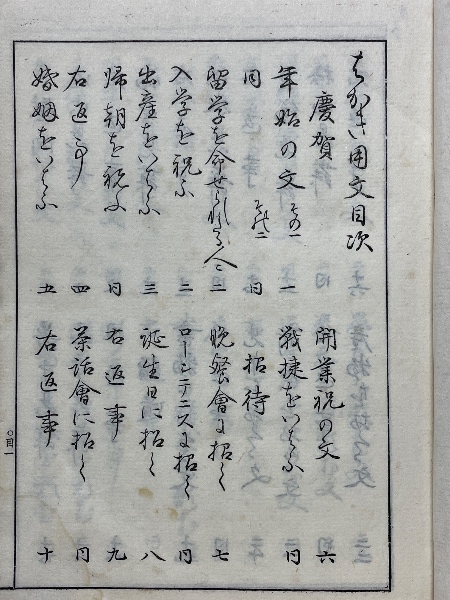 はがき用文目次
慶賀
年始の文 その一 一
同 その二 同
留学を命せられたる人に 二
入学を祝ふ 二
出産をいはふ 三
帰朝を祝ふ 同
右返事 四
婚姻をいはふ 五
開業祝の文 六
戦捷をいはふ 同
招待
晩餐會に招く 七
ローンテニスに招く 同
誕生日に招く 八
右返事 九
茶話會に招く 同
右返事 十
〇目一